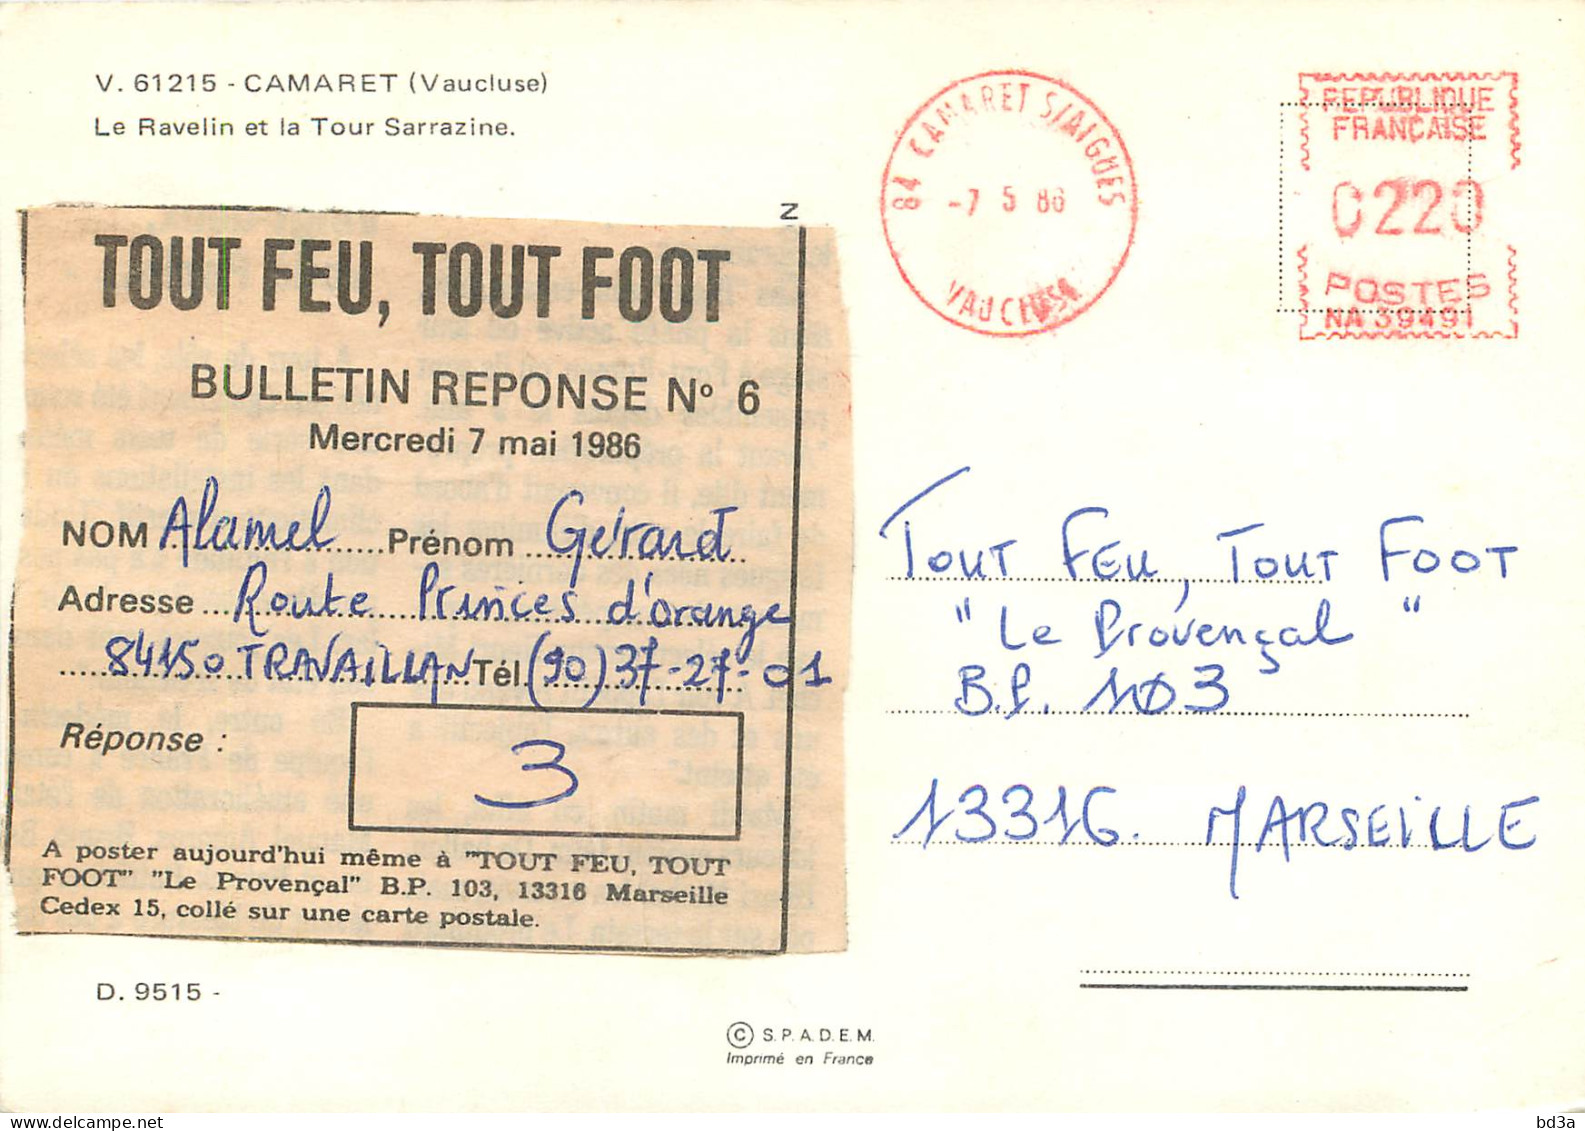 V. 61215 - CAMARET (Vaucluse)
Le Ravelin et la Tour Sarrazine.
84 CAMARET S/AIGUES
-7 5 86
VAUCLUSE
REPUBLIQUE
FRANCAISE
0220
POSTES
NA 39491
N
TOUT FEU, TOUT FOOT
BULLETIN REPONSE Nº 6
Mercredi 7 mai 1986
NOM Alamel Prénom Gérard
Adresse Route Princes d'Orange
84150 TRAVAILLAN Tél. (90) 37-27-01
Réponse : 3
A poster aujourd'hui même à "TOUT FEU, TOUT
FOOT" "Le Provençal" B.P. 103, 13316 Marseille
Cedex 15, collé sur une carte postale.
TOUT FEU, TOUT FOOT
"Le Provençal"
B.P. 103
13316. MARSEILLE
D. 9515 -
© S.P.A.D.E.M.
Imprimé en France
bd3a